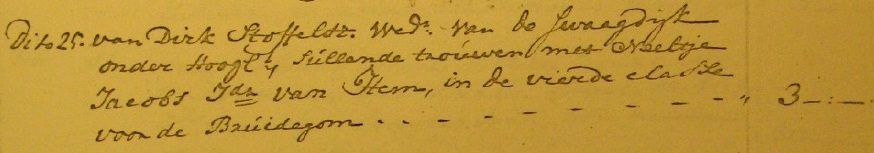 Dito 25. van Dirk Stoffelsz. Wedr. van de Swaagdijk
onder Hoogl: Sullende trouwen met Neeltje
Jacobs Jdr van Hem, in de vierde classe
voor de Bruidegom . . - - - - - - - " 3 – : –